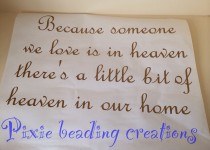 Because someone
we love is in heaven
there's a little bit of
heaven in our home
Pixie beading creations